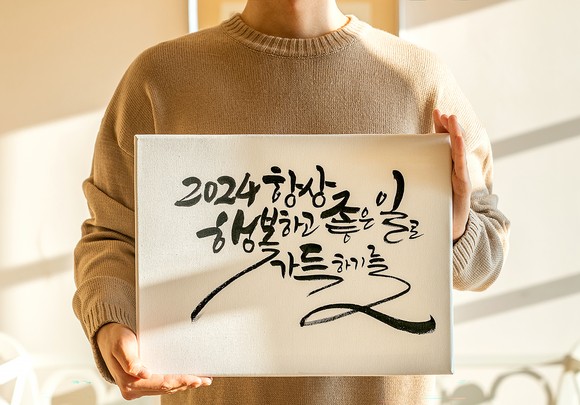 2024 항상
행복하고 좋은 일로
가득하기를